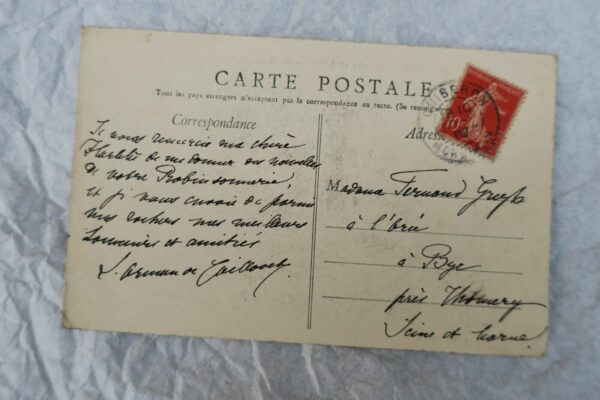 CARTE POSTALE
Tous les pays étrangers n'acceptent pas la correspondance au recto. (Se renseigner
Correspondance
Adres
Je vous remercie ma chère
de me donner des nouvelles
de votre Robinsonnerie,
et je vous envoie de parmi
mes rochers mes meilleurs
souvenirs et amitiés
L. Arman de Caillavet
Madame Fernand Gregh
à l'
à Bye
près Thomery
Seine et Marne.
10